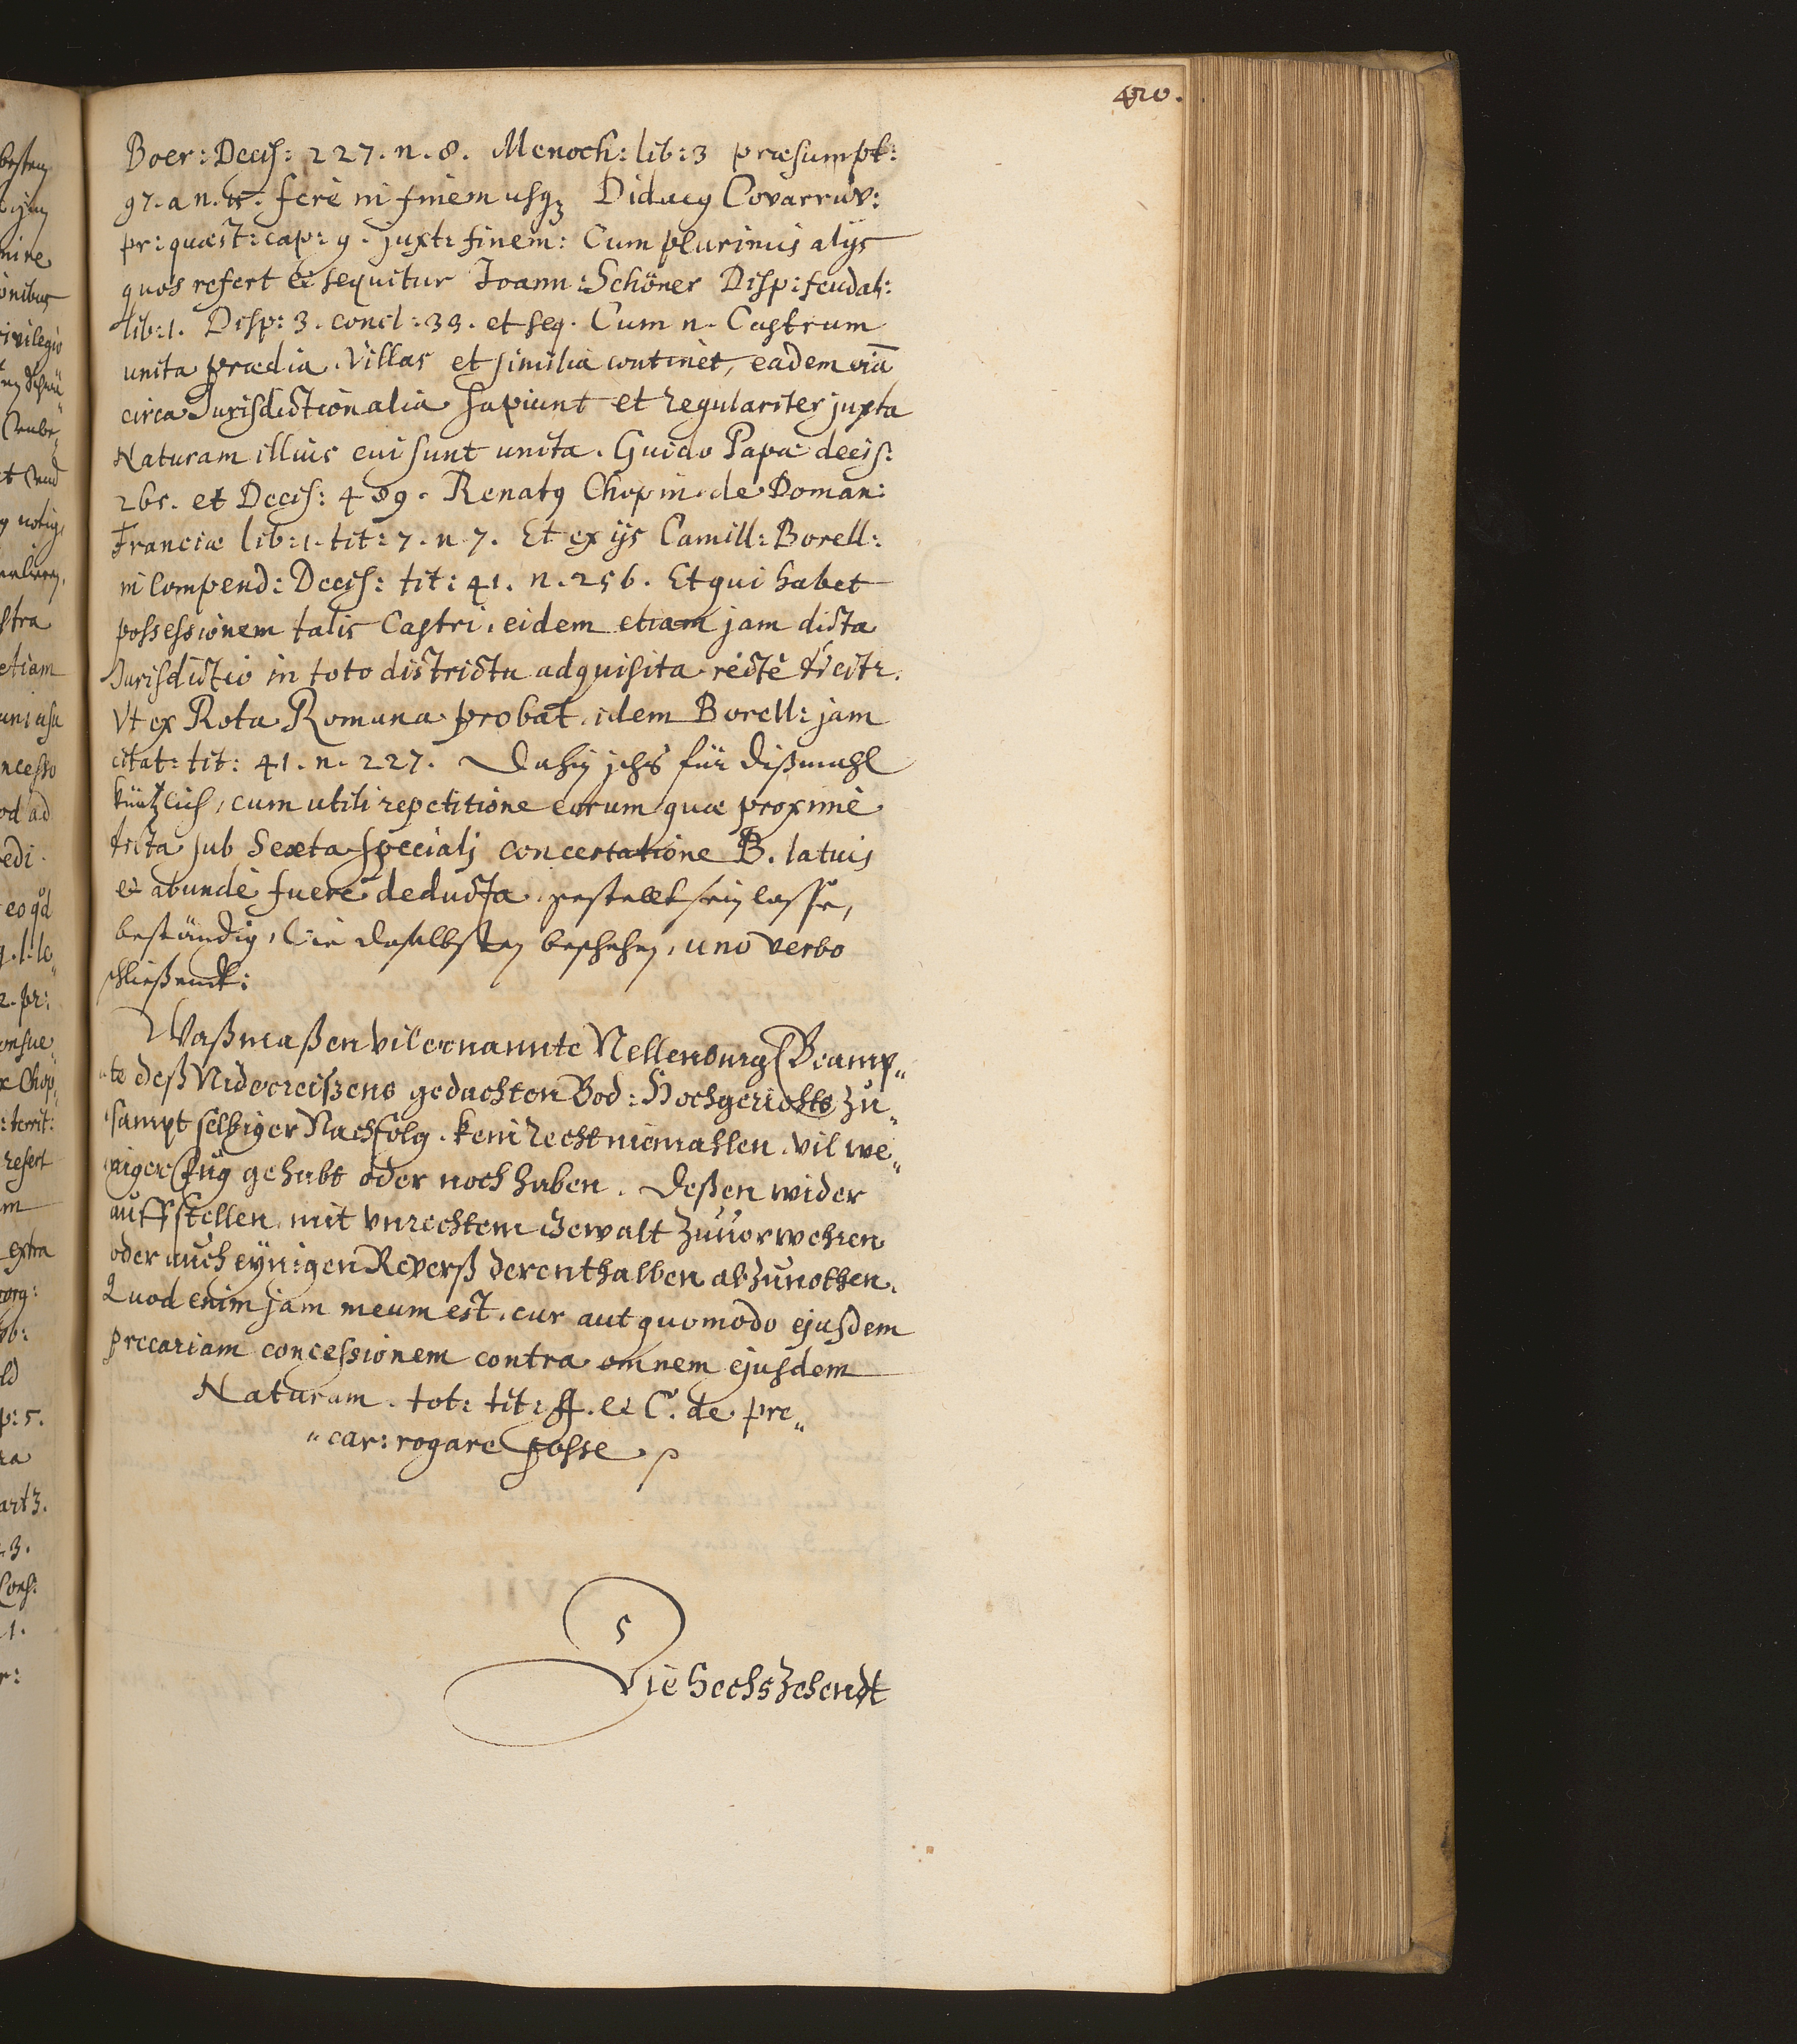 420.
Boer: Decis: 227. n. 8. Menoch: lib: 3 præsumpt:
97. a n. 15. ferè in finem usq3 Didacq Covarruv:
pr: quæst: cap: 9. juxt: finem: Cum plurimis alijs
quos refert et sequitur Joann: Schöner Disp: feudal:
lib: 1. Disp: 3. concl: 33. et seq. Cum n. Castrum
unita prædia, Villas et similia continet, eadem viã
circa Jurisdictionalia sapiunt et regulariter juxta
Naturam illius cui sunt unita. Guido Papæ decis:
265. et Decis: 489. Renatq Chopin. de Doman:
Franciæ lib: 1. tit: 7. n 7. Et ex ijs Camill: Borell:
in Compend: Decis: tit: 41. n. 256. Et qui habet
possessionem talis Castri, eidem etiam jam dicta
Jurisdictio in toto districtu adquisita rectè dicitr.
Vt ex Rota Romana probat idem Borell: jam
citat: tit: 41. n. 227. Dahin ichs für dißmahl
kürtzlich, cum utili repetitione eorum quæ proximè
trita sub Sexta speciali concertatione B. latius
et abundè fuere deducta, gestellt sein lasse,
beständig, wie daselbsten beschehen, uno verbo
schließendt:
Waßmaßen vilernannte Nellenburg. Beamp„
„te deß Nidereißens gedachten Bod: Hochgerichts zu„
sampt selbiger Nachfolg. kein recht niemahlen. vil we„
niger fug gehabt oder noch haben. Deßen wider
auffstellen, mit vnrechtem Gewalt zuuerwehren
oder auch eynigen Reverß derenthalben abzunothen.
Quod enim jam meum est, cur aut quomodo ejusdem
precariam concessionem contra omnem ejusdem
Naturam. tot: tit: ff. et C. de pre„
„car: rogare posse.
5
Die Sechszehendt